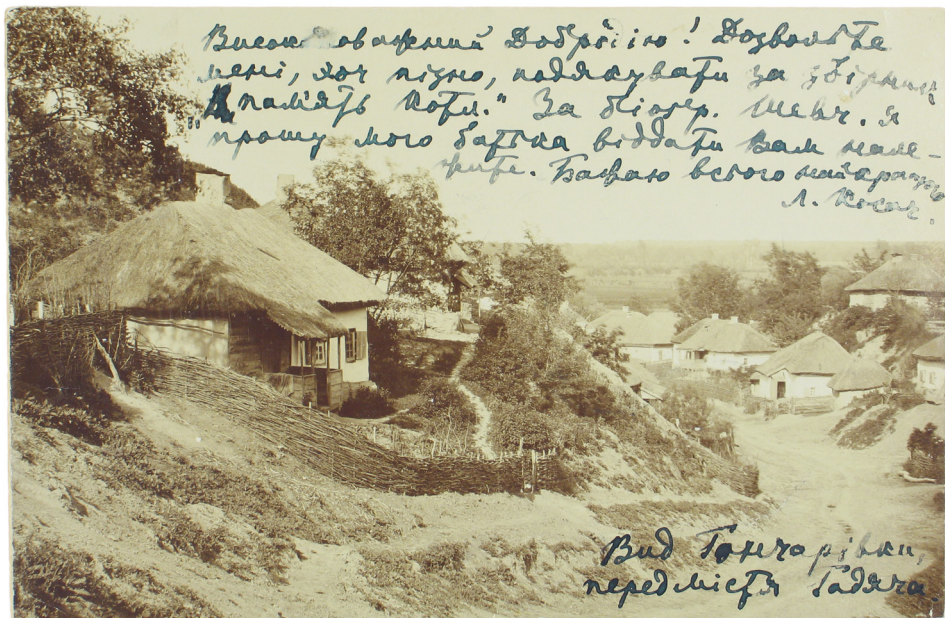 Високоповажний Добрійю! Дозвольте
мені, хоч пізно, подякувати за збірник
„Памʼять Котл." За біогр. Шевч. я
прошу мого батька віддати Вам нале-
жите. Бажаю всього найкращого
Л. Косач.
Вид Гончарівки,
передмістя Гадяча.